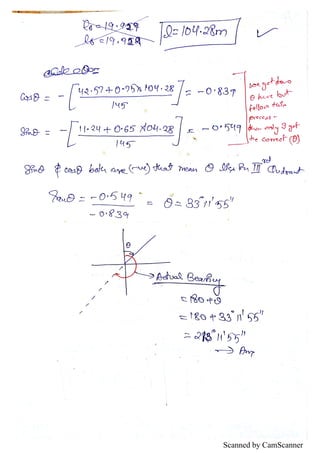 l = 104.28m
cosθ = - [ 42.57 + 0.75 × 104.28 / 145 ] = -0.839
sinθ = - [ 11.24 + 0.65 × 104.28 / 145 ] = -0.549
θ have but
follow this
process -
the correct (θ)
sinθ & cosθ both are (-ve) that mean θ lies in IIIrd Qudrant
Tanθ = -0.549 / -0.839 = θ = 33° 11' 55"
θ
→ Actual Bearing
= 180 + θ
= 180 + 33° 11' 55"
= 213° 11' 55"
→ Ans
Scanned by CamScanner